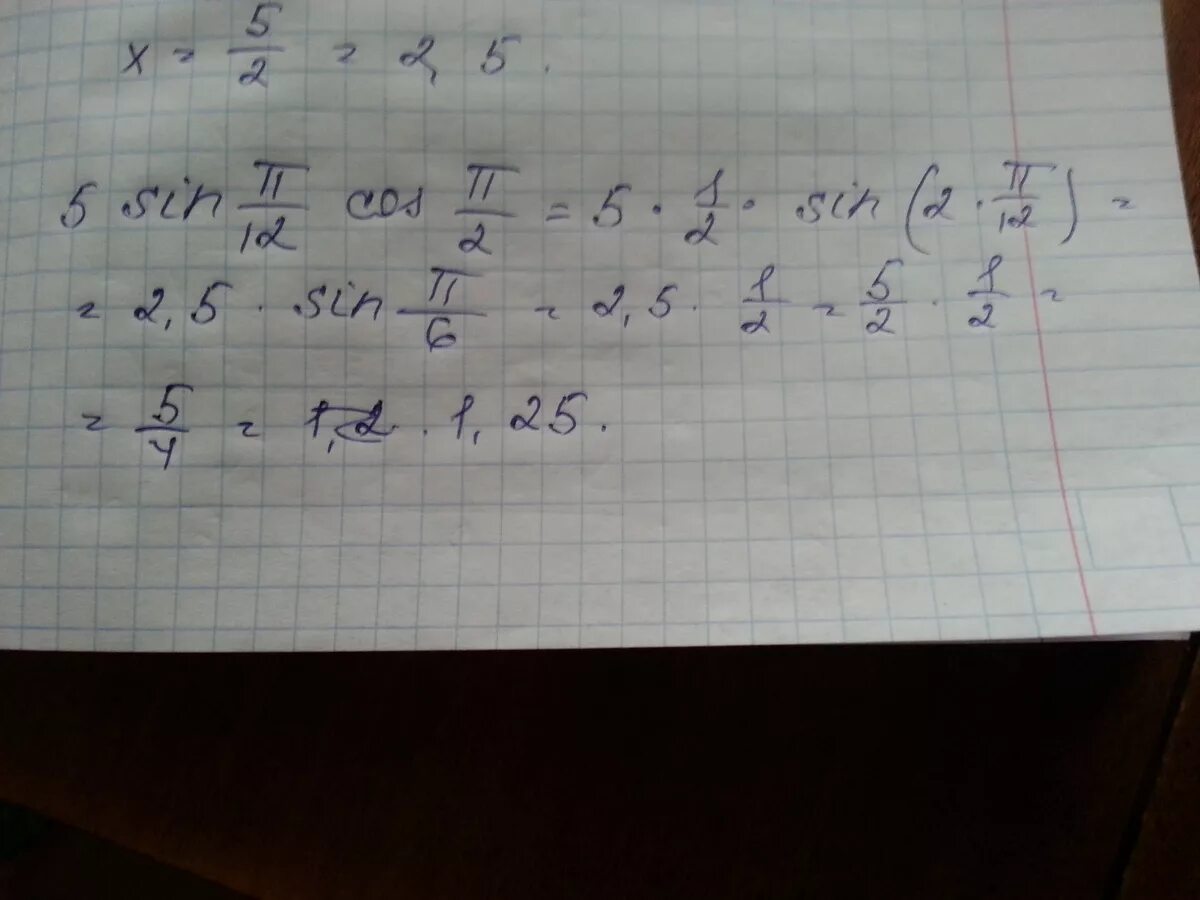 x = 5/2 = 2,5.
5 sin π/12 cos π/2 = 5 · 1/2 · sin (2 · π/12) =
= 2,5 · sin π/6 = 2,5 · 1/2 = 5/2 · 1/2 =
= 5/4 = 1,2 . 1,25.